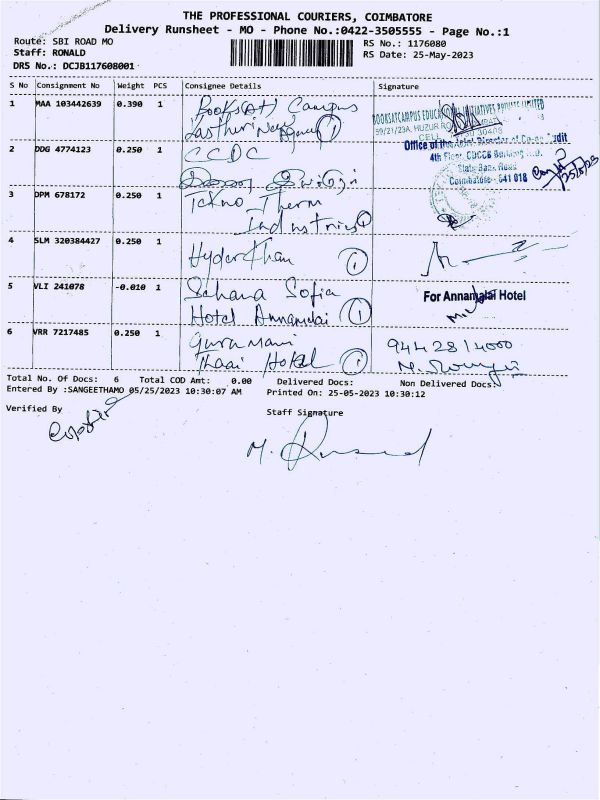 THE PROFESSIONAL COURIERS, COIMBATORE
Delivery Runsheet - MO - Phone No.:0422-3505555 - Page No.:1
Route: SBI ROAD MO
Staff: RONALD
DRS No.: DCJB117608001
RS No.: 1176080
RS Date: 25-May-2023
S No Consignment No Weight PCS Consignee Details Signature
1 MAA 103442639 0.390 1 Books(at) Campus
BOOKSATCAMPUS EDUCATIONAL INITIATIVES PRIVATE LIMITED
59/21/23A, HUZUR ROAD
2 DDG 4774123 0.250 1 CCDC
4th Floor, CDCCB Building
State Bank Road
Coimbatore - 641 018
25/5/23
3 DPM 678172 0.250 1 Tekno Therm
Industries 1
4 SLM 320384427 0.250 1 Hyder Khan 1
5 VLI 241078 -0.010 1 Sahana Sofia
Hotel Annamalai 1
For Annamalai Hotel
6 VRR 7217485 0.250 1 Gurumani
Thaai Hotel 1
94428 14000
Total No. Of Docs: 6 Total COD Amt: 0.00 Delivered Docs: Non Delivered Docs:
Entered By :SANGEETHAMO 05/25/2023 10:30:07 AM Printed On: 25-05-2023 10:30:12
Verified By
Staff Signature